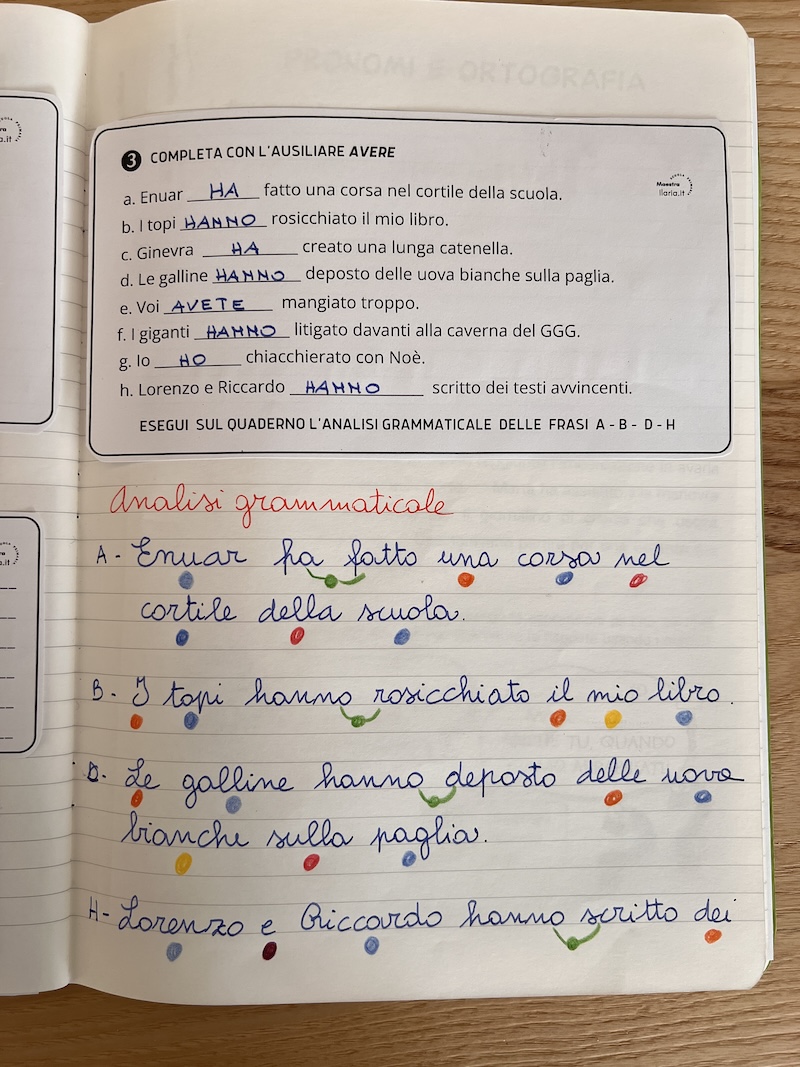 PRONOMI E ORTOGRAFIA
3 COMPLETA CON L'AUSILIARE AVERE
Maestra
Ilaria.it
a. Enuar HA fatto una corsa nel cortile della scuola.
b. I topi HANNO rosicchiato il mio libro.
c. Ginevra HA creato una lunga catenella.
d. Le galline HANNO deposto delle uova bianche sulla paglia.
e. Voi AVETE mangiato troppo.
f. I giganti HANNO litigato davanti alla caverna del GGG.
g. Io HO chiacchierato con Noè.
h. Lorenzo e Riccardo HANNO scritto dei testi avvincenti.
ESEGUI SUL QUADERNO L'ANALISI GRAMMATICALE DELLE FRASI A - B - D - H
Analisi grammaticale
A - Enuar ha fatto una corsa nel
cortile della scuola.
B - I topi hanno rosicchiato il mio libro.
D - Le galline hanno deposto delle uova
bianche sulla paglia.
H - Lorenzo e Riccardo hanno scritto dei